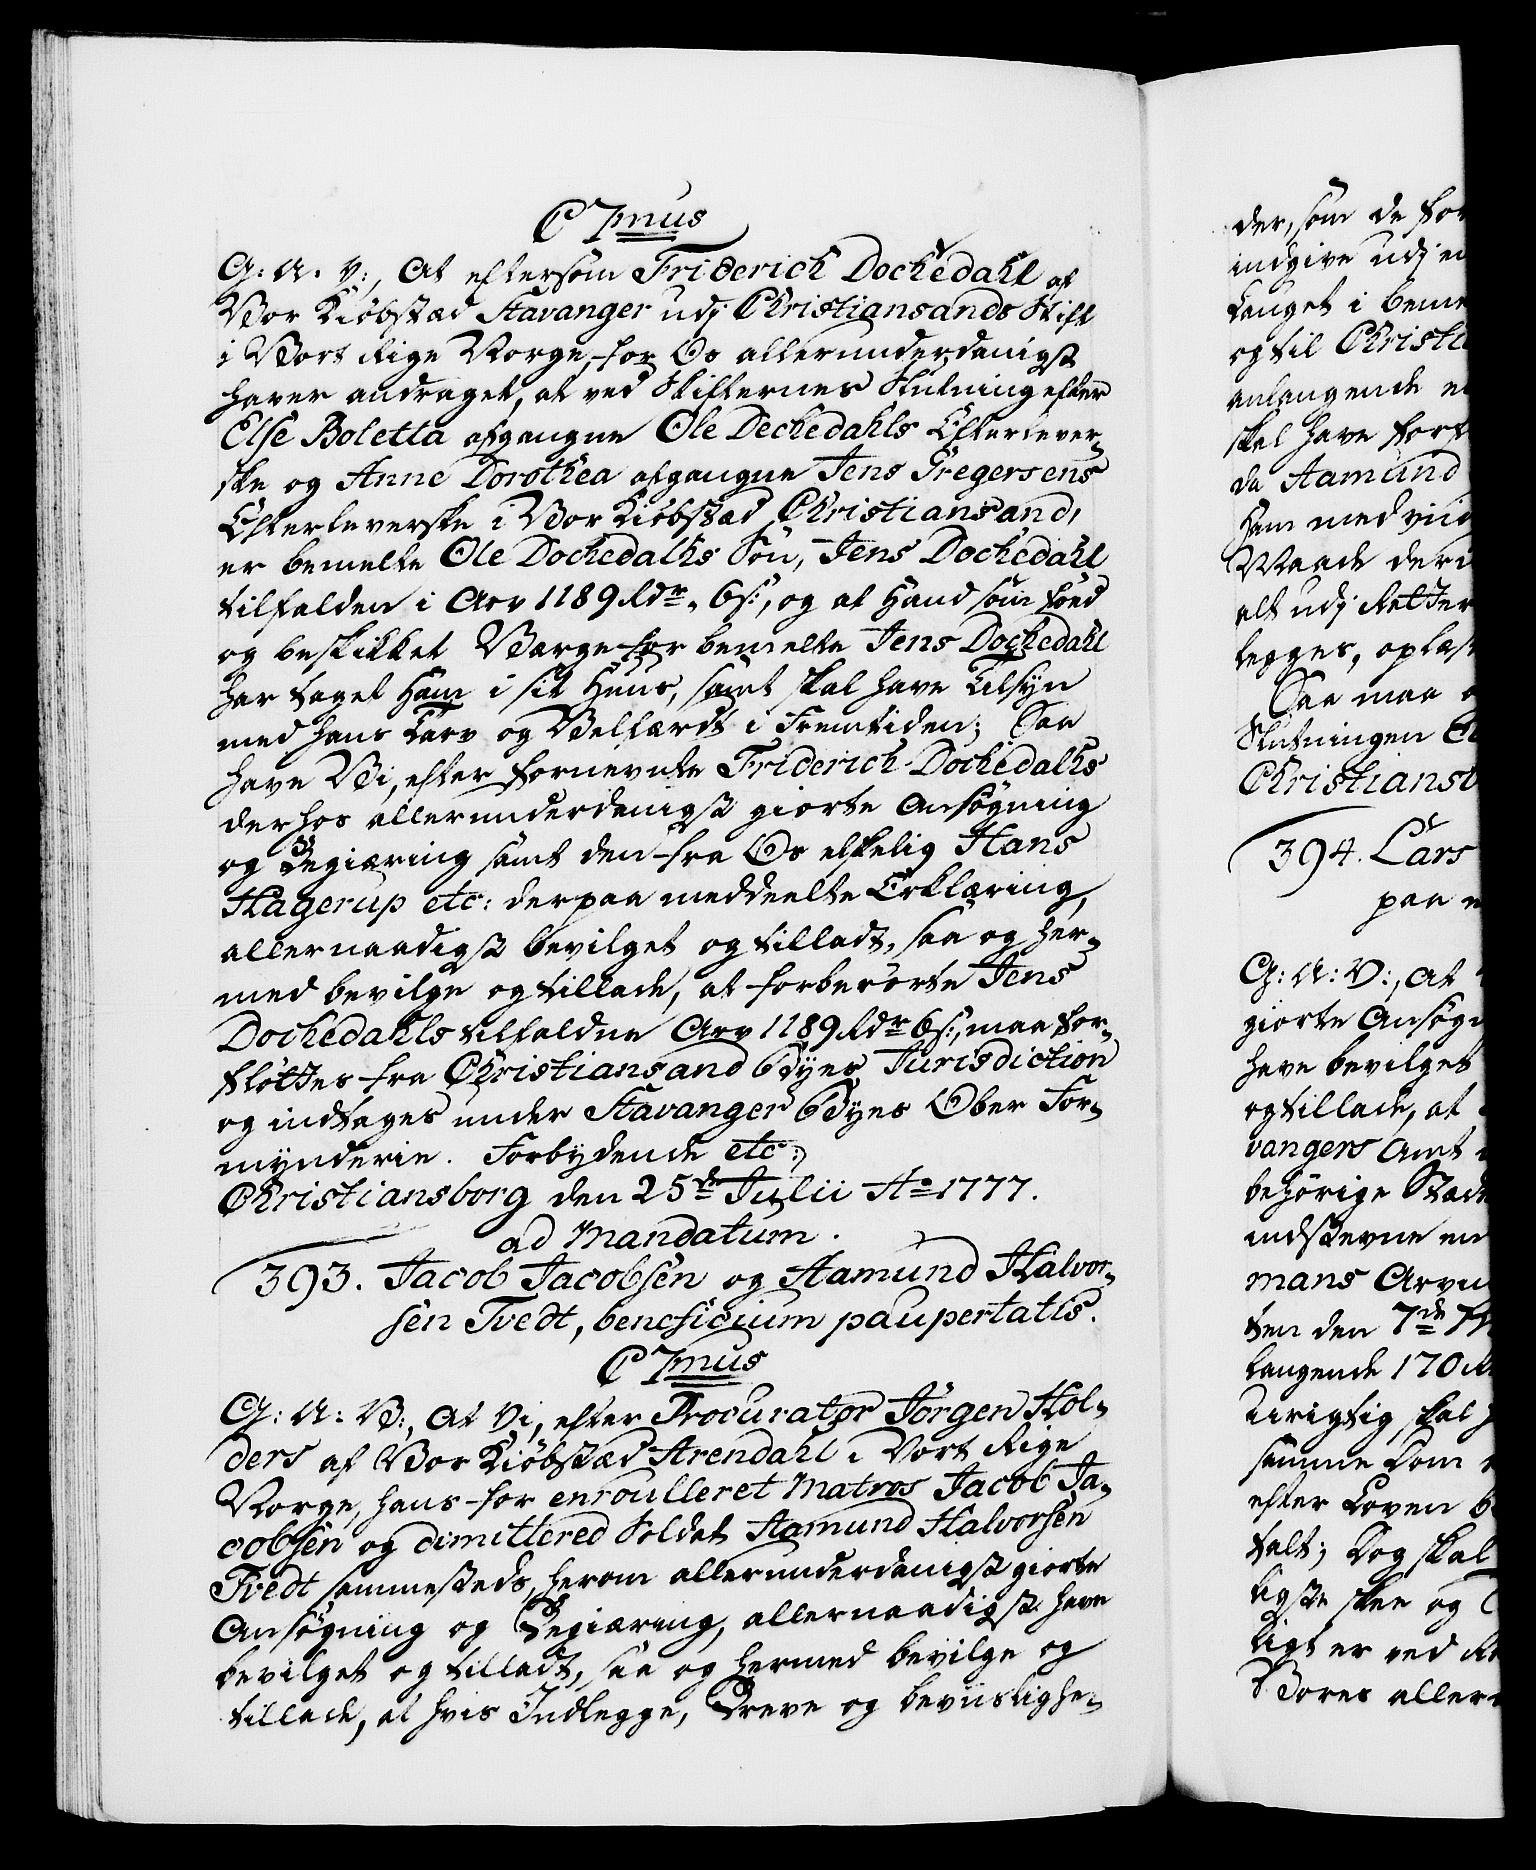 C 7mus
G: A. V:, At eftersom Friderich Dochedahl af
Vor Kiøbstæd Stavanger udj Christiansands Stift
i Vort Rige Norge, for Os allerunderdanigst
haver andraget, at ved Skifternes Slutning efter
Else Boletta afgangne Ole Dechedahls Efterlever-
ske og Anne Dorothea afgangne Jens Gregersens
Efterleverske i Vor Kiøbstæd Christiansand,
er bemelte Ole Dochedalhs Søn, Jens Dochedahl
tilfalden i Arv 1189 Rdr. 6 s:, og at Hand som født
og beskikket Værge for bemelte Jens Dochedahl
har taget Ham i sit Huus, samt skal have Tilsyn
med hans Tarv og Velfærdt i Fremtiden; Saa
have Vi, efter fornevnte Friderich Dochedalhs
derhos allerunderdanigst giorte Ansøgning
og Begiæring samt den fra Os elskelig Hans
Hagerup etc: derpaa meddeelte Erklæring,
allernaadigst bevilget og tilladt, saa og her-
med bevilge og tillade, at forberørte Jens
Dochedahls tilfaldne Arv 1189 Rdr 6 s:, maa for-
fløttes fra Christiansand Byes Jurisdiction
og indtages under Stavanger Byes Ober For-
mynderie. Forbydende etc:
Christiansborg den 25de Julii Ao 1777.
ad Mandatum.
393. Jacob Jacobsen og Aamund Halvor-
sen Tvedt, beneficium paupertatis.
C 7mus
G: A: V:, At Vi, efter Procurator Jørgen Hol-
ders af Vor Kiøbstæd Arendahl i Vort Rige
Norge, hans for enroulleret Matros Jacob Ja-
cobsen og dimittered Soldat Aamund Halvorsen
Tvedt sammesteds, herom allerunderdanigst giorte
Ansøgning og Begiæring, allernaadigst have
bevilget og tilladt, saa og hermed bevilge og
tillade, at hvis Indlegge, Breve og beviislighe-
der, som de for
indgive udj en
Lauget i beme
og til Christi
anlangende e
skal have forf
da Aamund
Ham med viid
Maade der
alt udj Retter
legges, oplæs
Saa maa
Slutningen
Christiansb
394. Lars
paa
G: A: V:, At
giorte Ansøgn
have bevilget
og tillade, at
vangers Amt
behørige Stæd
indstevne en
mans Arvin
ten den 7de
langende 170 R
Urigtig, skal
samme Dom
efter Loven
talt; Dog skal
ligste skee og
ligt er ved R
Vores aller